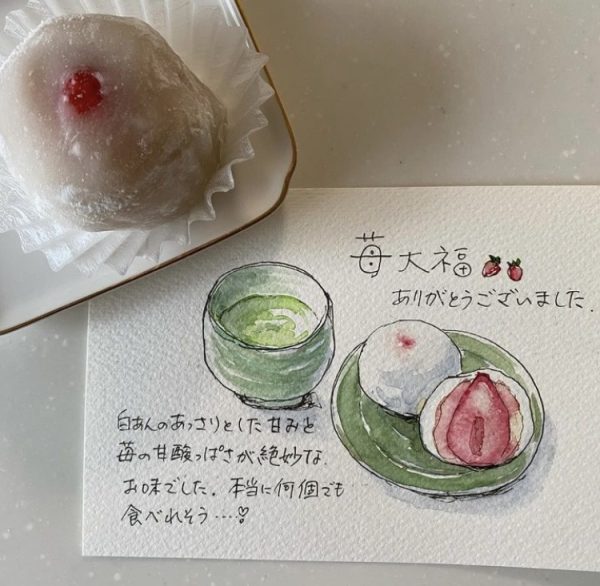 苺大福
ありがとうございました.
白あんのあっさりとした甘みと
苺の甘酸っぱさが絶妙な
お味でした. 本当に何個でも
食べれそう....♡